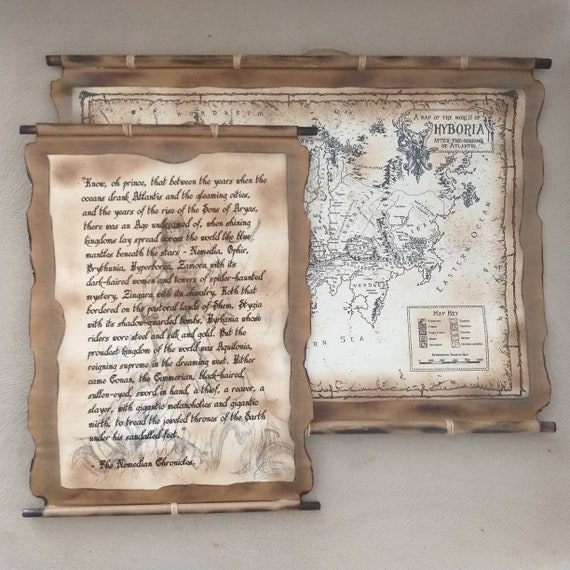 "Know, oh prince, that between the years when the
oceans drank Atlantis and the gleaming cities,
and the years of the rise of the Sons of Aryas,
there was an Age undreamed of, when shining
kingdoms lay spread across the world like blue
mantles beneath the stars - Nemedia, Ophir,
Brythunia, Hyperborea, Zamora with its
dark-haired women and towers of spider-haunted
mystery, Zingara with its chivalry, Koth that
bordered on the pastoral lands of Shem, Stygia
with its shadow-guarded tombs, Hyrkania whose
riders wore steel and silk and gold. But the
proudest kingdom of the world was Aquilonia,
reigning supreme in the dreaming west. Hither
came Conan, the Cimmerian, black-haired,
sullen-eyed, sword in hand, a thief, a reaver, a
slayer, with gigantic melancholies and gigantic
mirth, to tread the jeweled thrones of the Earth
under his sandalled feet.
- The Nemedian Chronicles.
A MAP OF THE WORLD OF
HYBORIA
AFTER THE SINKING
OF ATLANTIS
Eastern Ocean
Sea
Map Key